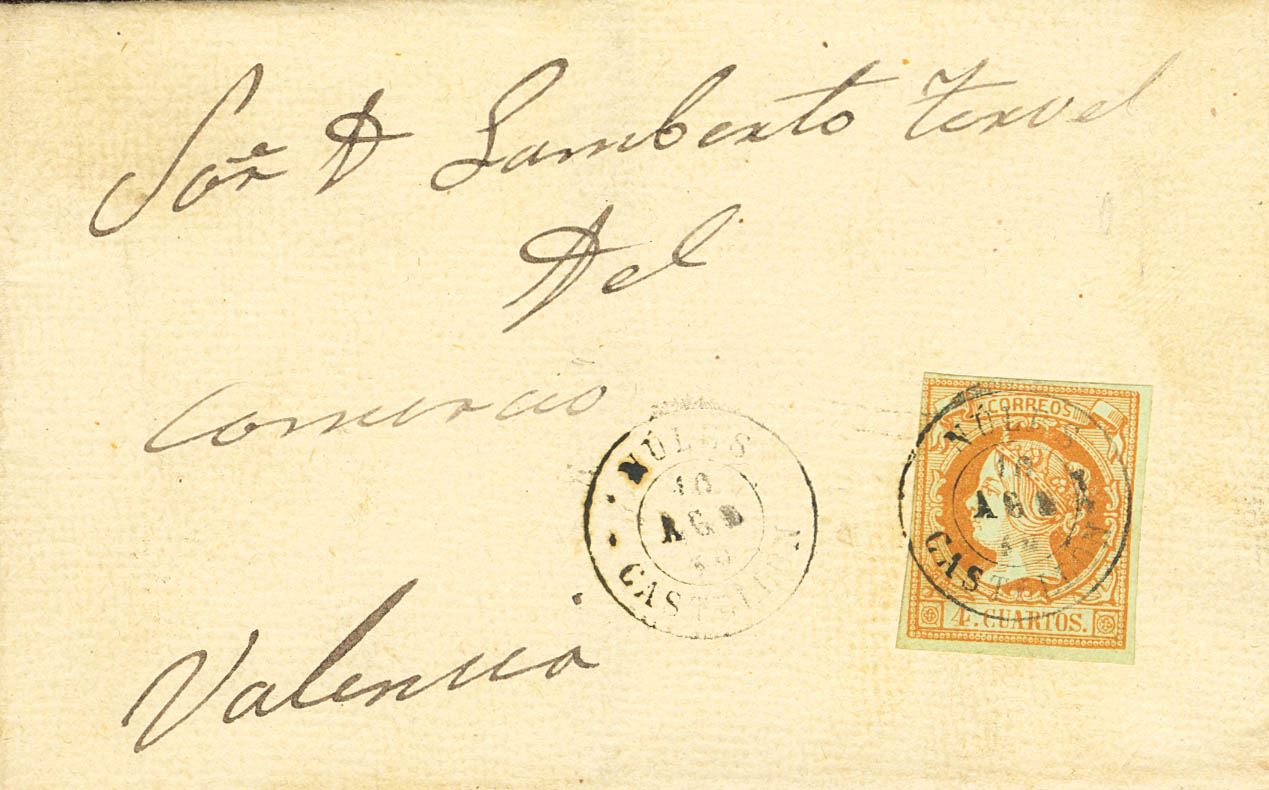 Sor D Lamberto Teruel
Del
Comercio
Valencia
NULES
10
AGO
CASTELLON
CORREOS
NULES
10
AGO
CASTELLON
4. CUARTOS.